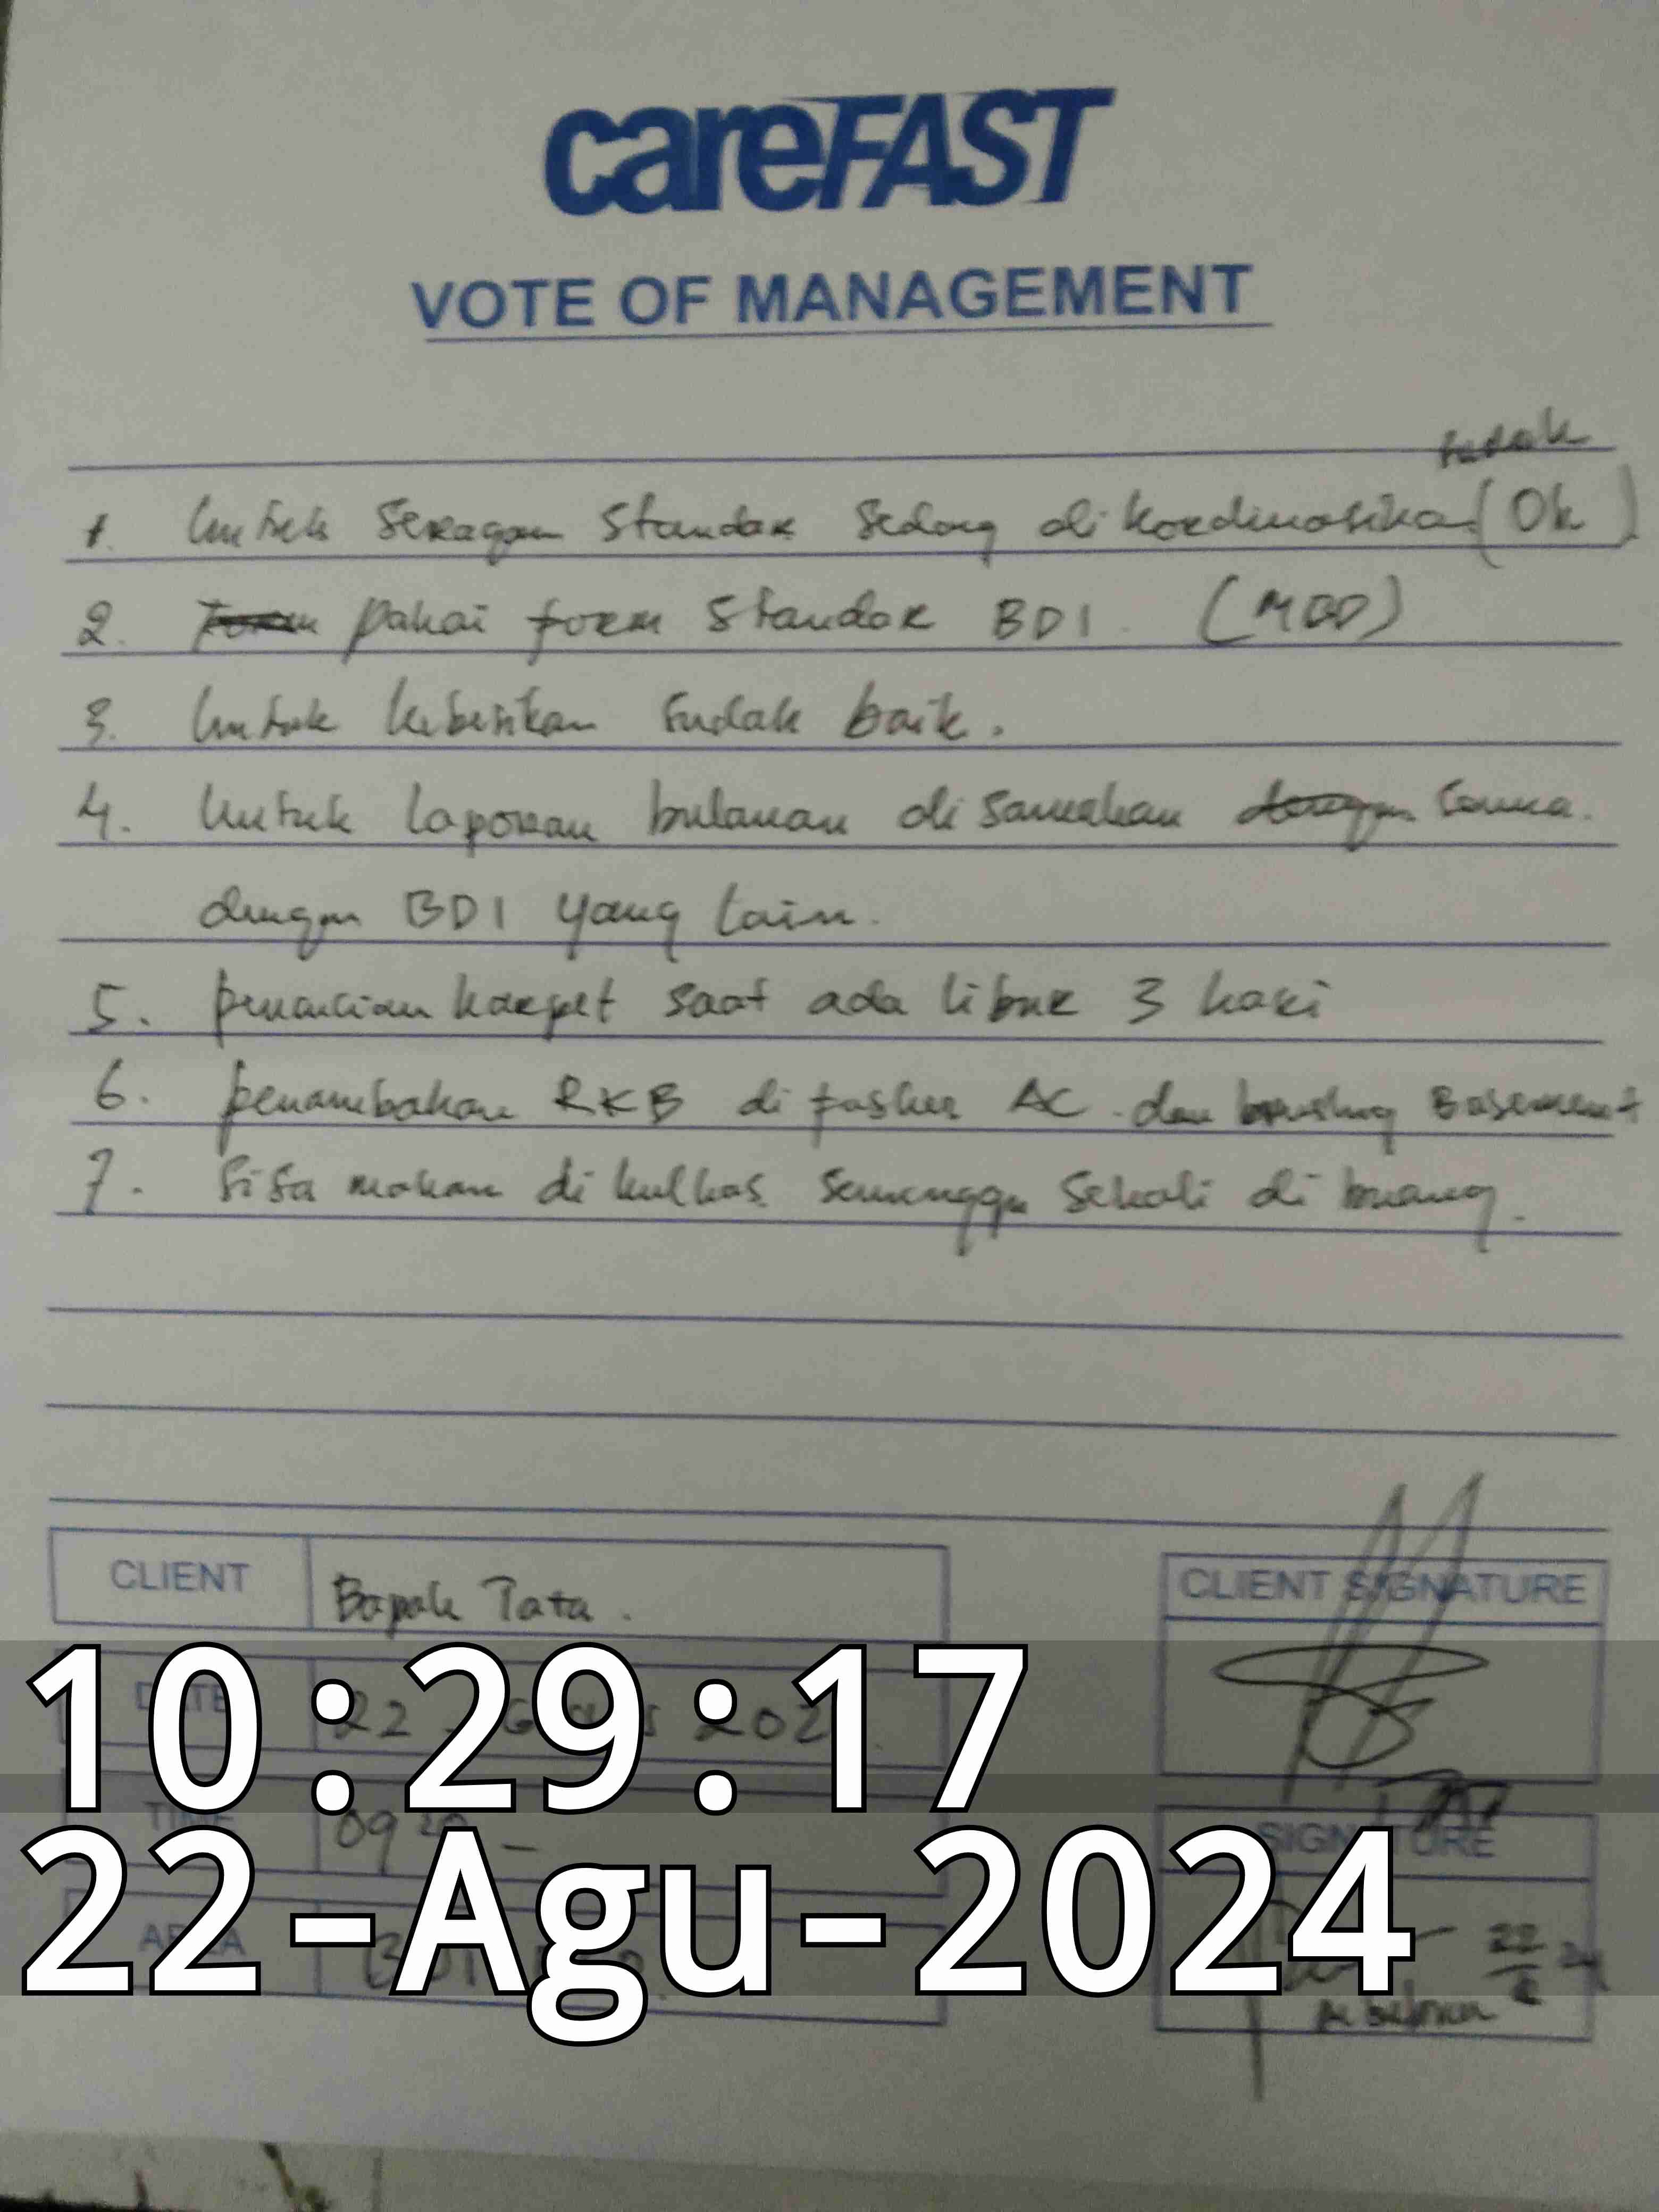 careFAST
VOTE OF MANAGEMENT
sudah
1. Untuk Seragam Standar Sedang di kordinasikan (Ok)
2. Form pakai form Standar BDI. (MOD)
3. Untuk kebersihan sudah baik.
4. Untuk laporan bulanan di samakan dengan semua.
dengan BDI yang lain.
5. pencucian karpet saat ada libur 3 hari
6. penambahan RKB di AC dan brushing Basement
7. Sisa makan di kulkas seminggu sekali di buang.
CLIENT Bapak Tata.
CLIENT SIGNATURE
DATE 22 202
TIME 09
SIGNATURE
AREA BDI
22/8 24
10:29:17
22-Agu-2024